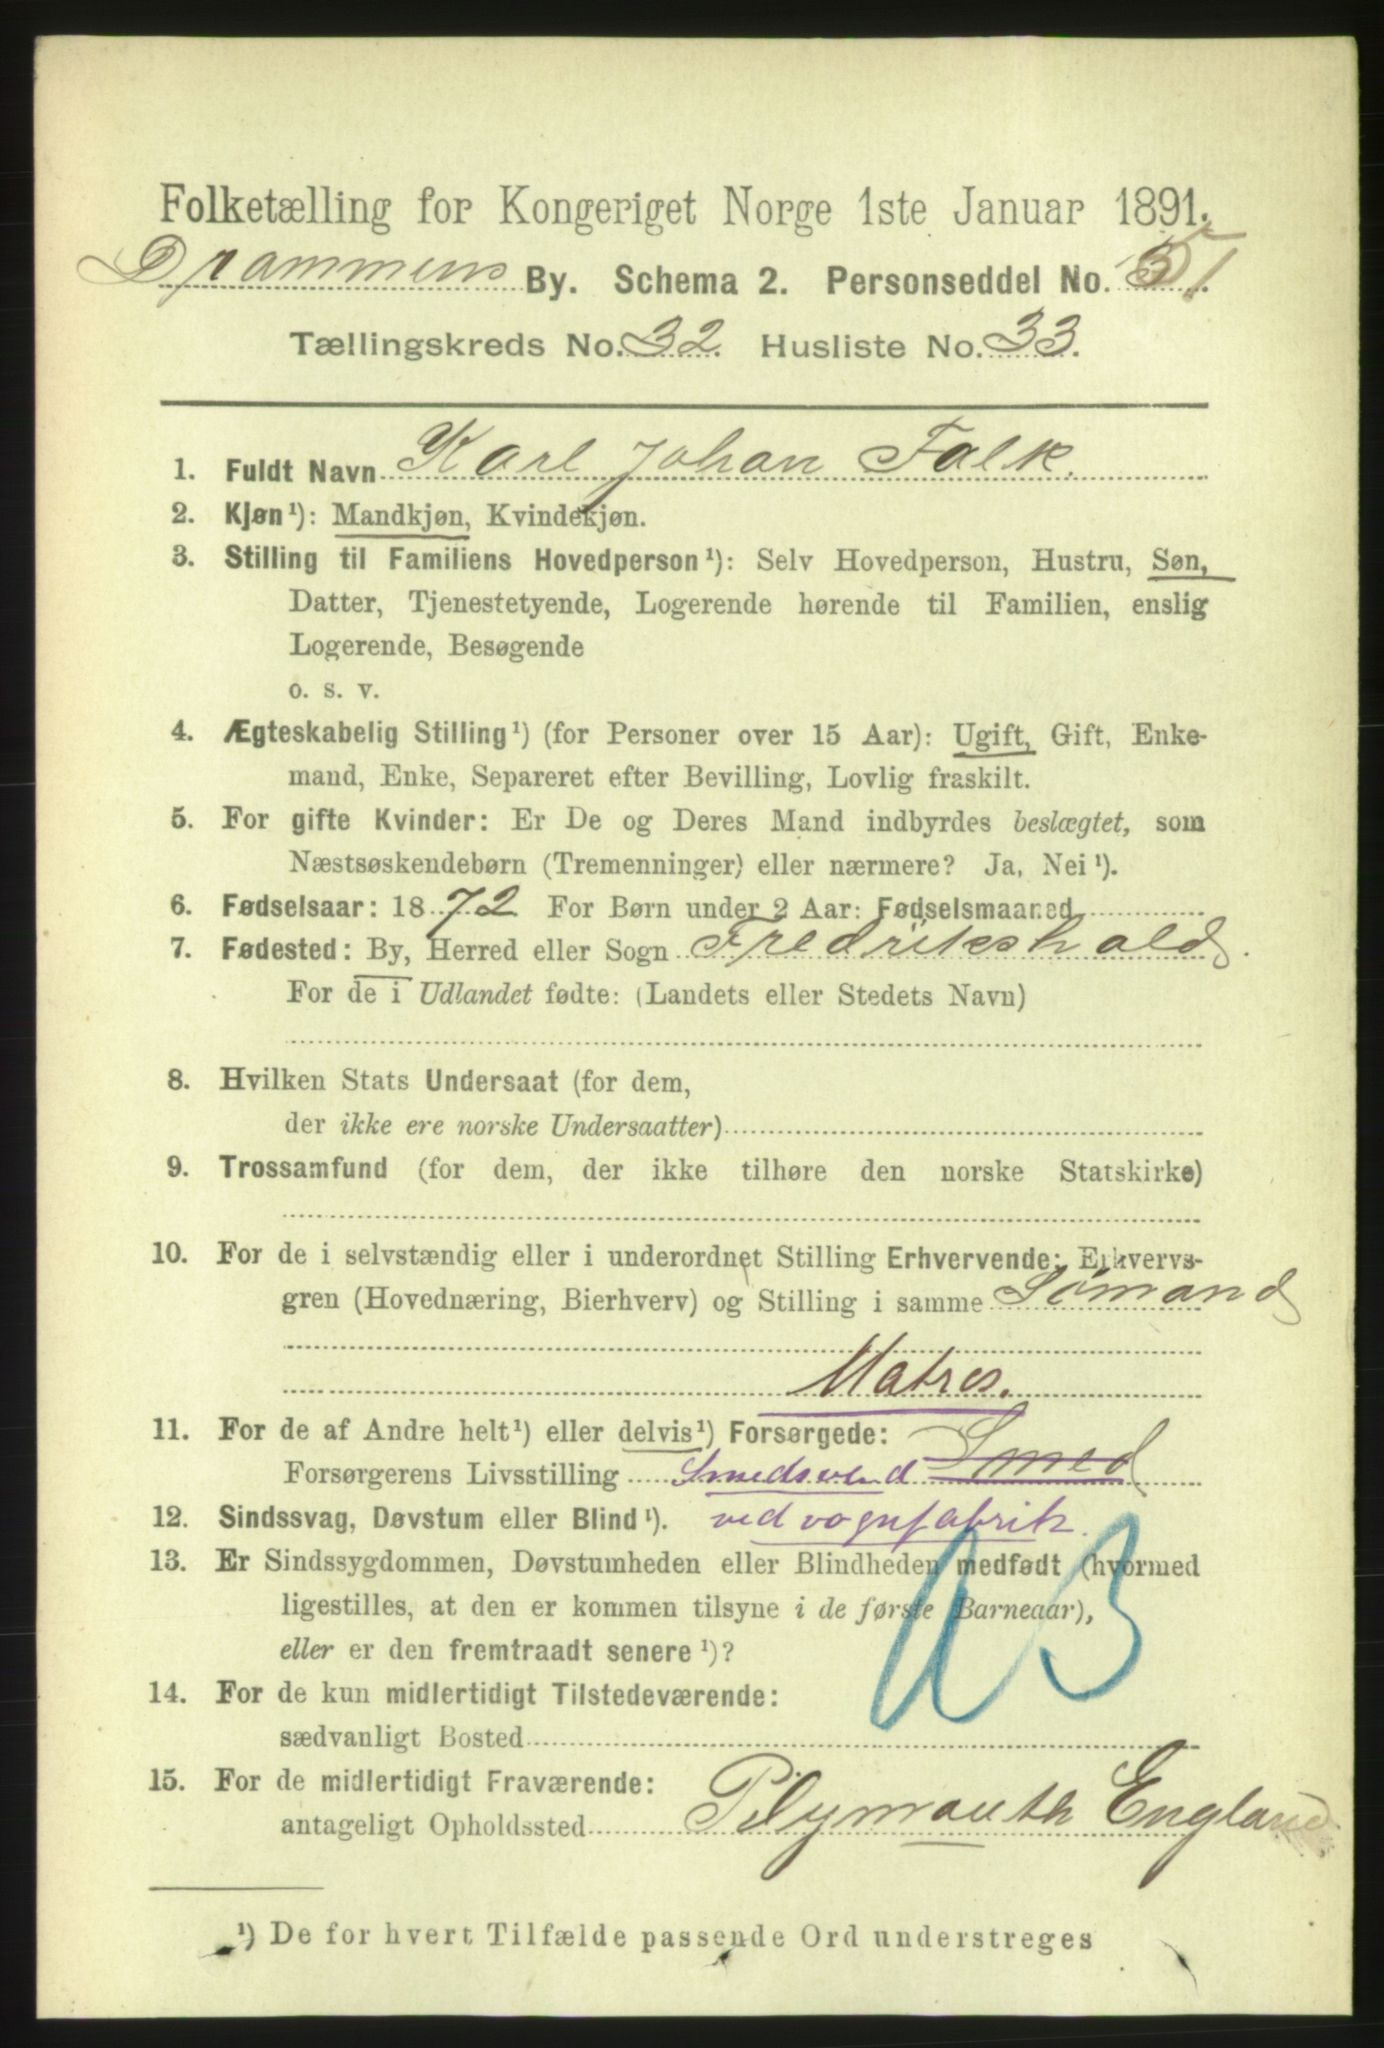 Folketælling for Kongeriget Norge 1ste Januar 1891.
Drammens By. Schema 2. Personseddel No. 51
Tællingskreds No. 32. Husliste No. 33.
1. Fuldt Navn Karl Johan Falk.
2. Kjøn¹): Mandkjøn, Kvindekjøn.
3. Stilling til Familiens Hovedperson¹): Selv Hovedperson, Hustru, Søn,
Datter, Tjenestetyende, Logerende hørende til Familien, enslig
Logerende, Besøgende
o. s. v.
4. Ægteskabelig Stilling¹) (for Personer over 15 Aar): Ugift, Gift, Enke-
mand, Enke, Separeret efter Bevilling, Lovlig fraskilt.
5. For gifte Kvinder: Er De og Deres Mand indbyrdes beslægtet, som
Næstsøskendebørn (Tremenninger) eller nærmere? Ja, Nei¹).
6. Fødselsaar: 1872 For Børn under 2 Aar: Fødselsmaaned
7. Fødested: By, Herred eller Sogn Fredrikshald.
For de i Udlandet fødte: (Landets eller Stedets Navn)
8. Hvilken Stats Undersaat (for dem,
der ikke ere norske Undersaatter)
9. Trossamfund (for dem, der ikke tilhøre den norske Statskirke)
10. For de i selvstændig eller i underordnet Stilling Erhvervende: Erhvervs-
gren (Hovednæring, Bierhverv) og Stilling i samme Sømand
Matros.
11. For de af Andre helt¹) eller delvis¹) Forsørgede:
Forsørgerens Livsstilling Smedsvend Smed
12. Sindssvag, Døvstum eller Blind¹). ved vognfabrik.
13. Er Sindssygdommen, Døvstumheden eller Blindheden medfødt (hvormed
ligestilles, at den er kommen tilsyne i de første Barneaar),
eller er den fremtraadt senere¹)?
14. For de kun midlertidigt Tilstedeværende:
sædvanligt Bosted
15. For de midlertidigt Fraværende:
antageligt Opholdssted Plymauth England
¹) De for hvert Tilfælde passende Ord understreges